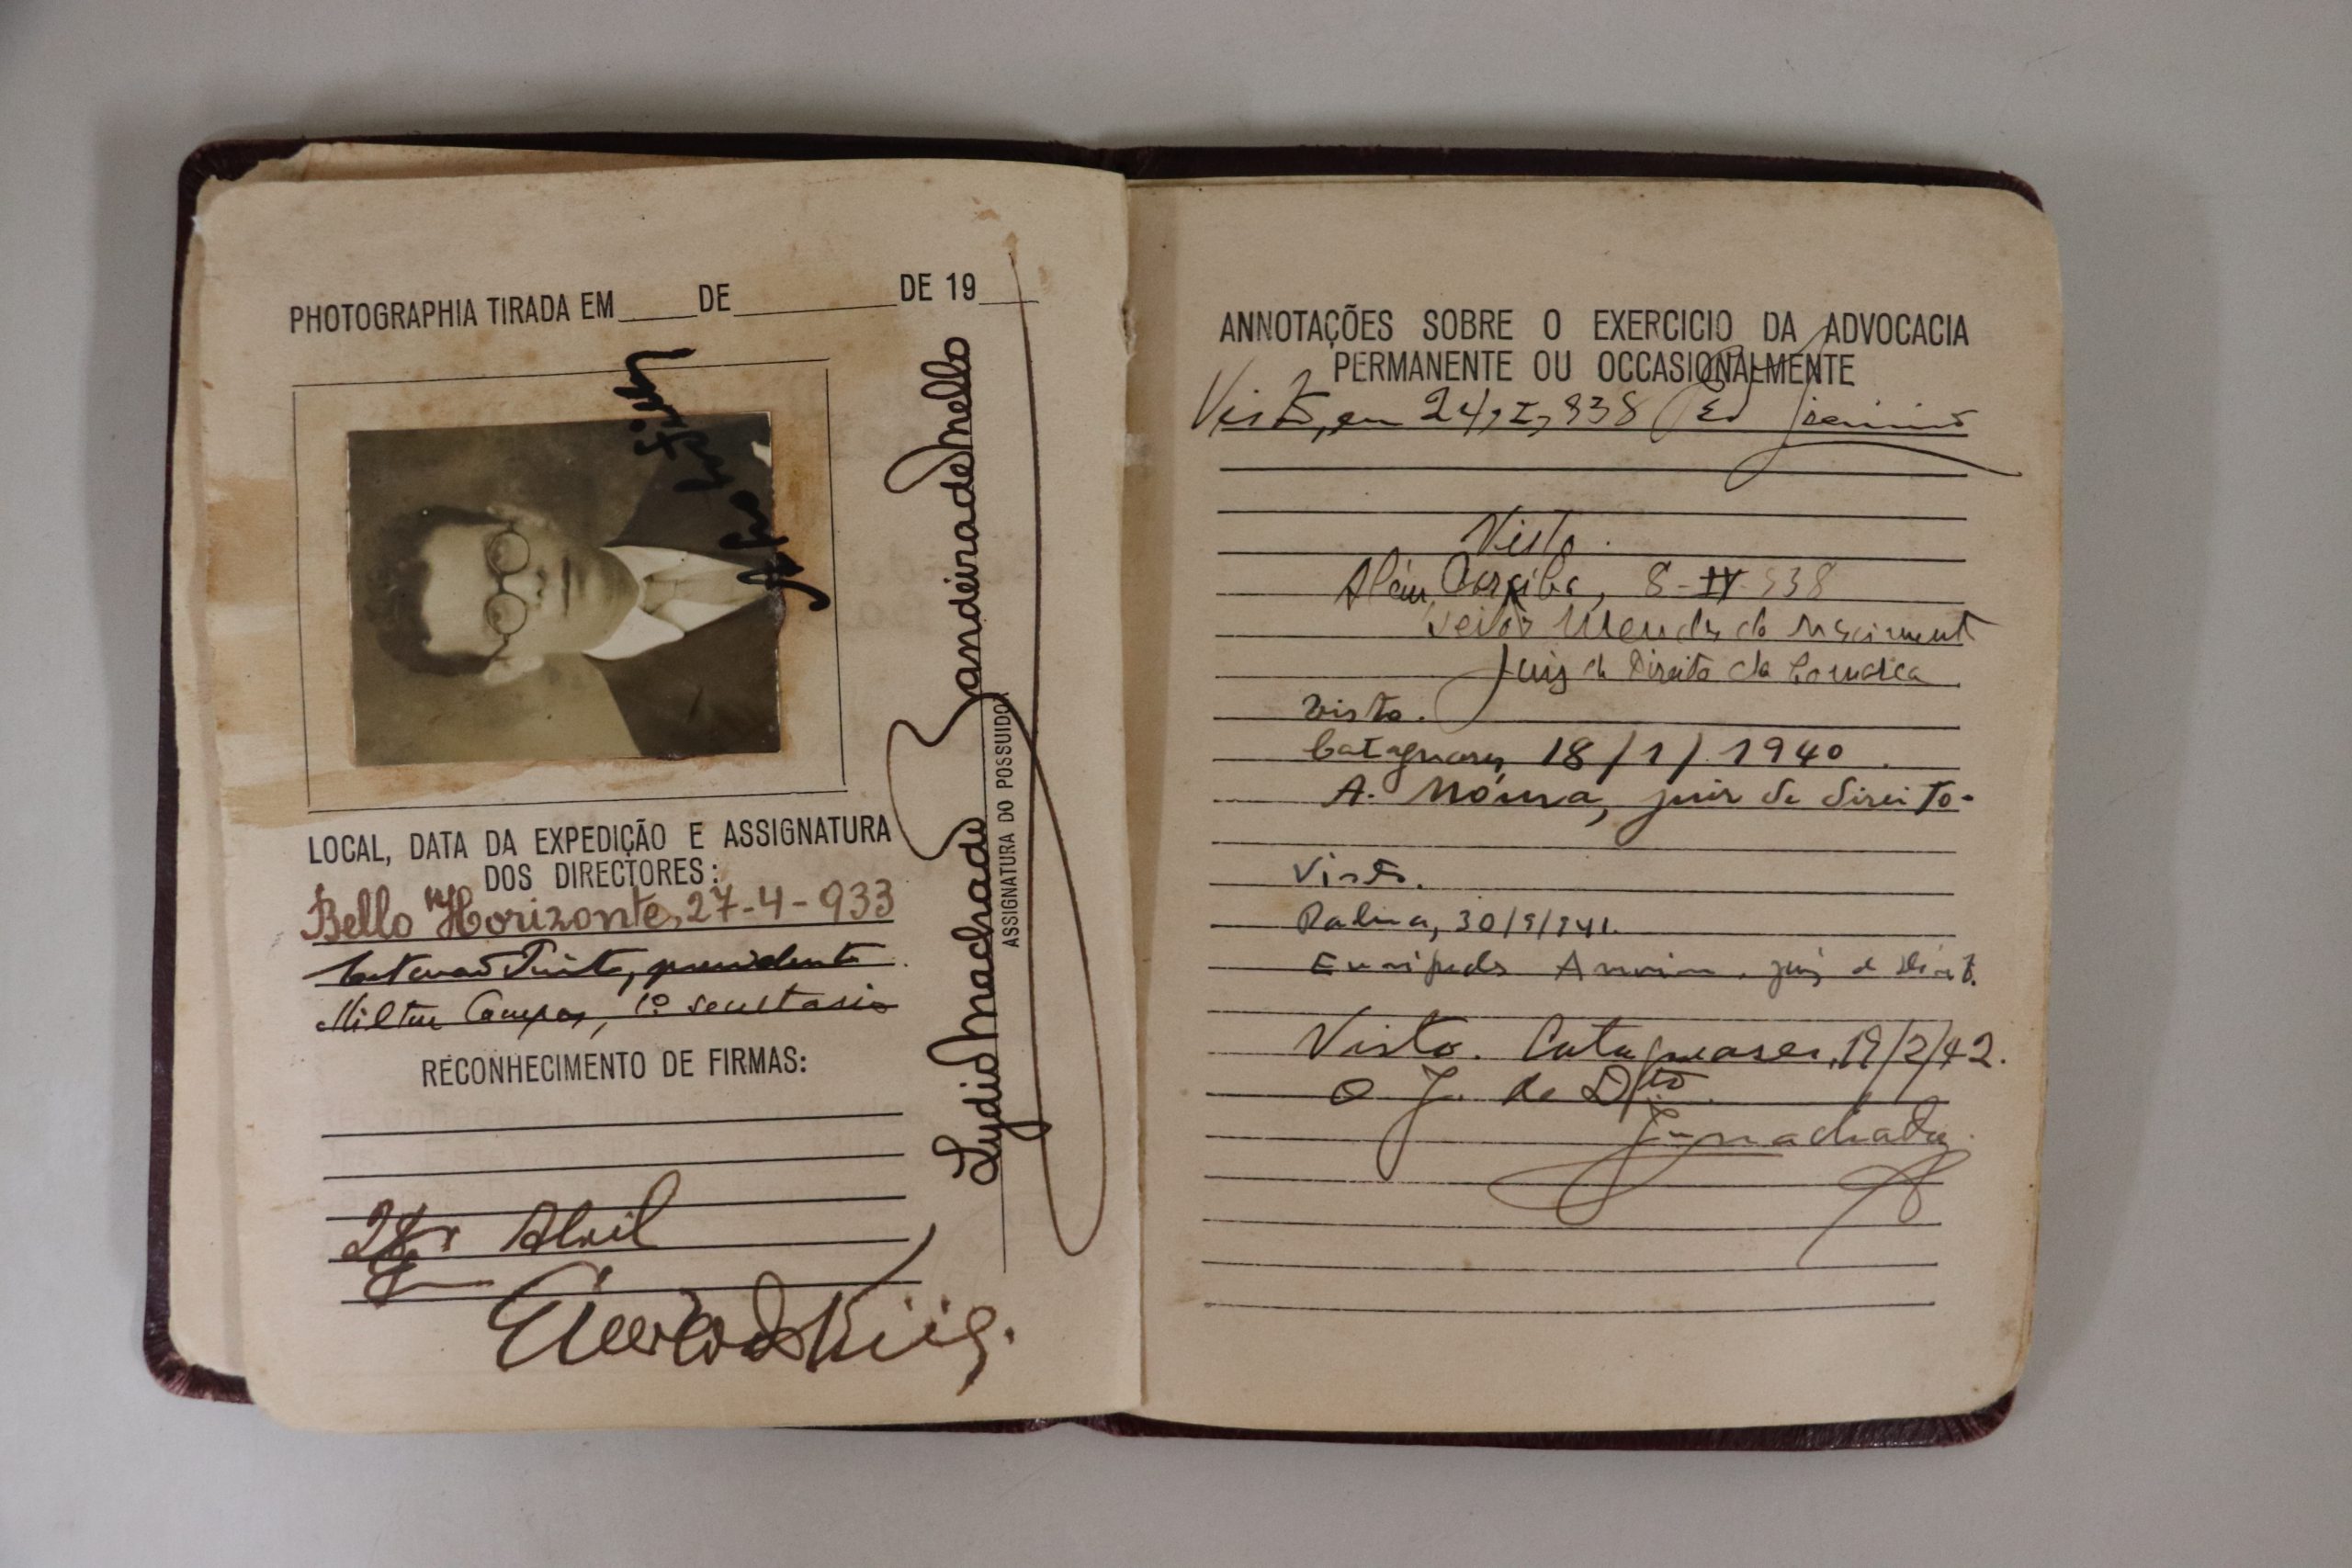 PHOTOGRAPHIA TIRADA EM DE DE 19
Lydio Machado Bandeira de Mello
ASSIGNATURA DO POSSUIDOR
LOCAL, DATA DA EXPEDIÇÃO E ASSIGNATURA
DOS DIRECTORES:
Bello Horizonte, 27-4-933
Pinto, presidente
Milton Campos, 1º secretario
RECONHECIMENTO DE FIRMAS:
Abril
ANNOTAÇÕES SOBRE O EXERCICIO DA ADVOCACIA
PERMANENTE OU OCCASIONALMENTE
Visto, em 24, I, 938
Visto.
Além Paraiba, 8-IV-938
Mendes do Nascimento
Juiz de Direito da Comarca
Visto.
Cataguases, 18/1/1940.
A. Moura, juiz de direito.
Visto.
Palma, 30/9/941.
Euripedes Amorim, juiz de Direito.
Visto. Cataguases, 19/2/42.
O J. de Dto
Machado